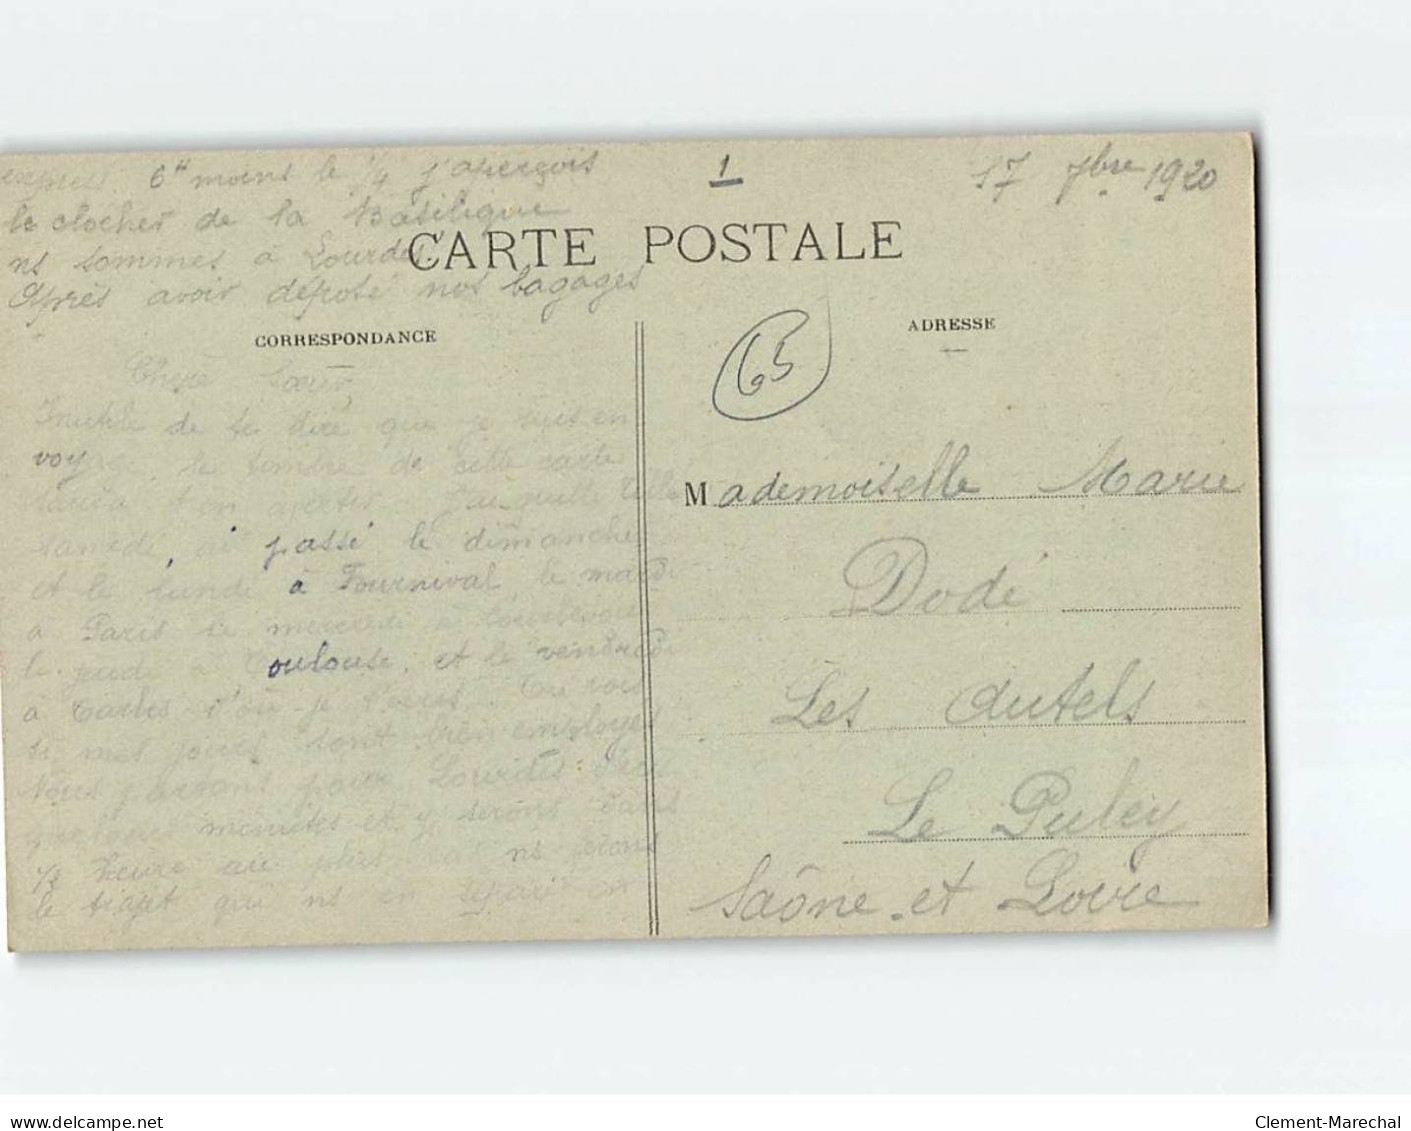 express. 6H moins le 1/4 j'aperçois
le clocher de la Basilique
ns sommes à Lourdes.
Après avoir déposé nos bagages
1
17 7bre 1920
CARTE POSTALE
CORRESPONDANCE
ADRESSE
65
Chère Sœur
Inutile de te dire que je suis en
voyage le timbre de cette carte
samedi, ai passé le dimanche
et le lundi à Fournival le mardi
à Paris le mercredi à
le jeudi à Toulouse, et le vendredi
à Tarbes d'où je t'écris. Tu vois
si mes jours sont bien employés
Nous partons pour Lourdes dans
quelques minutes et y serons dans
1/2 heure au plus
le trajet qui ns en sépare en
Mademoiselle Marie
Dodé
Les Autels
Le Puley
Saône et Loire
www.delcampe.net
Clement-Marechal